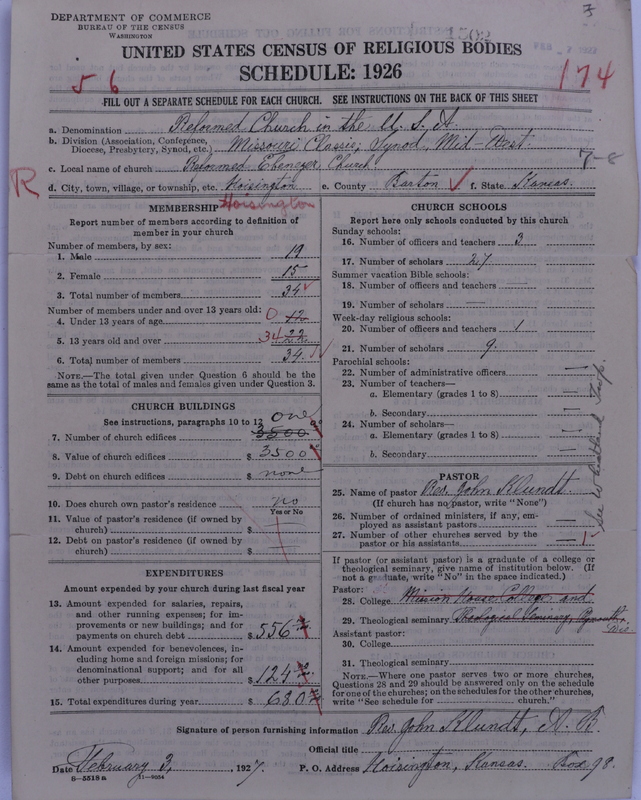 DEPARTMENT OF COMMERCE
BUREAU OF THE CENSUS
WASHINGTON
1502
UNITED STATES CENSUS OF RELIGIOUS BODIES
SCHEDULE: 1926
5 6
174
FILL OUT A SEPARATE SCHEDULE FOR EACH CHURCH. SEE INSTRUCTIONS ON THE BACK OF THIS SHEET
a. Denomination Reformed Church in the U. S. A.
b. Division (Association, Conference, Diocese, Presbytery, Synod, etc.) Missouri Classis, Synod, Mid-West.
c. Local name of church Reformed Ebenezer Church
7-8
R
d. City, town, village, or township, etc. Hoisington e. County Barton f. State Kansas.
Hoisington
MEMBERSHIP
Report number of members according to definition of
member in your church
Number of members, by sex:
1. Male 19
2. Female 15
3. Total number of members 34
Number of members under and over 13 years old:
4. Under 13 years of age 0 12
5. 13 years old and over 34 22
6. Total number of members 34.
NOTE.—The total given under Question 6 should be
same as the total of males and females given under Question 3.
CHURCH BUILDINGS
See instructions, paragraphs 10 to 12
7. Number of church edifices one 3500
8. Value of church edifices $ 3500
9. Debt on church edifices $ none
10. Does church own pastor's residence no
Yes or No
11. Value of pastor's residence (if owned by
church) $
12. Debt on pastor's residence (if owned by
church) $
EXPENDITURES
Amount expended by your church during last fiscal year
13. Amount expended for salaries, repairs,
and other running expenses; for im-
provements or new buildings; and for
payments on church debt $ 556
14. Amount expended for benevolences, in-
cluding home and foreign missions; for
denominational support; and for all
other purposes $ 124
15. Total expenditures during year $ 680
CHURCH SCHOOLS
Report here only schools conducted by this church
Sunday schools:
16. Number of officers and teachers 3
17. Number of scholars 27
Summer vacation Bible schools:
18. Number of officers and teachers —
19. Number of scholars —
Week-day religious schools:
20. Number of officers and teachers 1
21. Number of scholars 9.
Parochial schools:
22. Number of administrative officers —
23. Number of teachers—
a. Elementary (grades 1 to 8) —
b. Secondary —
24. Number of scholars—
a. Elementary (grades 1 to 8) —
b. Secondary —
PASTOR
25. Name of pastor Rev. John Klundt.
(If church has no pastor, write "None")
26. Number of ordained ministers, if any, em-
ployed as assistant pastors —
27. Number of other churches served by the
pastor or his assistants — 1
If pastor (or assistant pastor) is a graduate of a college or
theological seminary, give name of institution below. (If
not a graduate, write "No" in the space indicated.)
Pastor:
28. College Mission House College, and
29. Theological seminary Theological Seminary, Plymouth, Wis.
Assistant pastor:
30. College
31. Theological seminary
NOTE.—Where one pastor serves two or more churches,
Questions 28 and 29 should be answered only on the schedule
for one of the churches; on the schedules for the other churches,
write "See schedule for ______ church."
Signature of person furnishing information Rev. John Klundt, A. B.
Official title
Date February 3, 1927. P. O. Address Hoisington, Kansas. Box 98.
8—5518a 11—9054